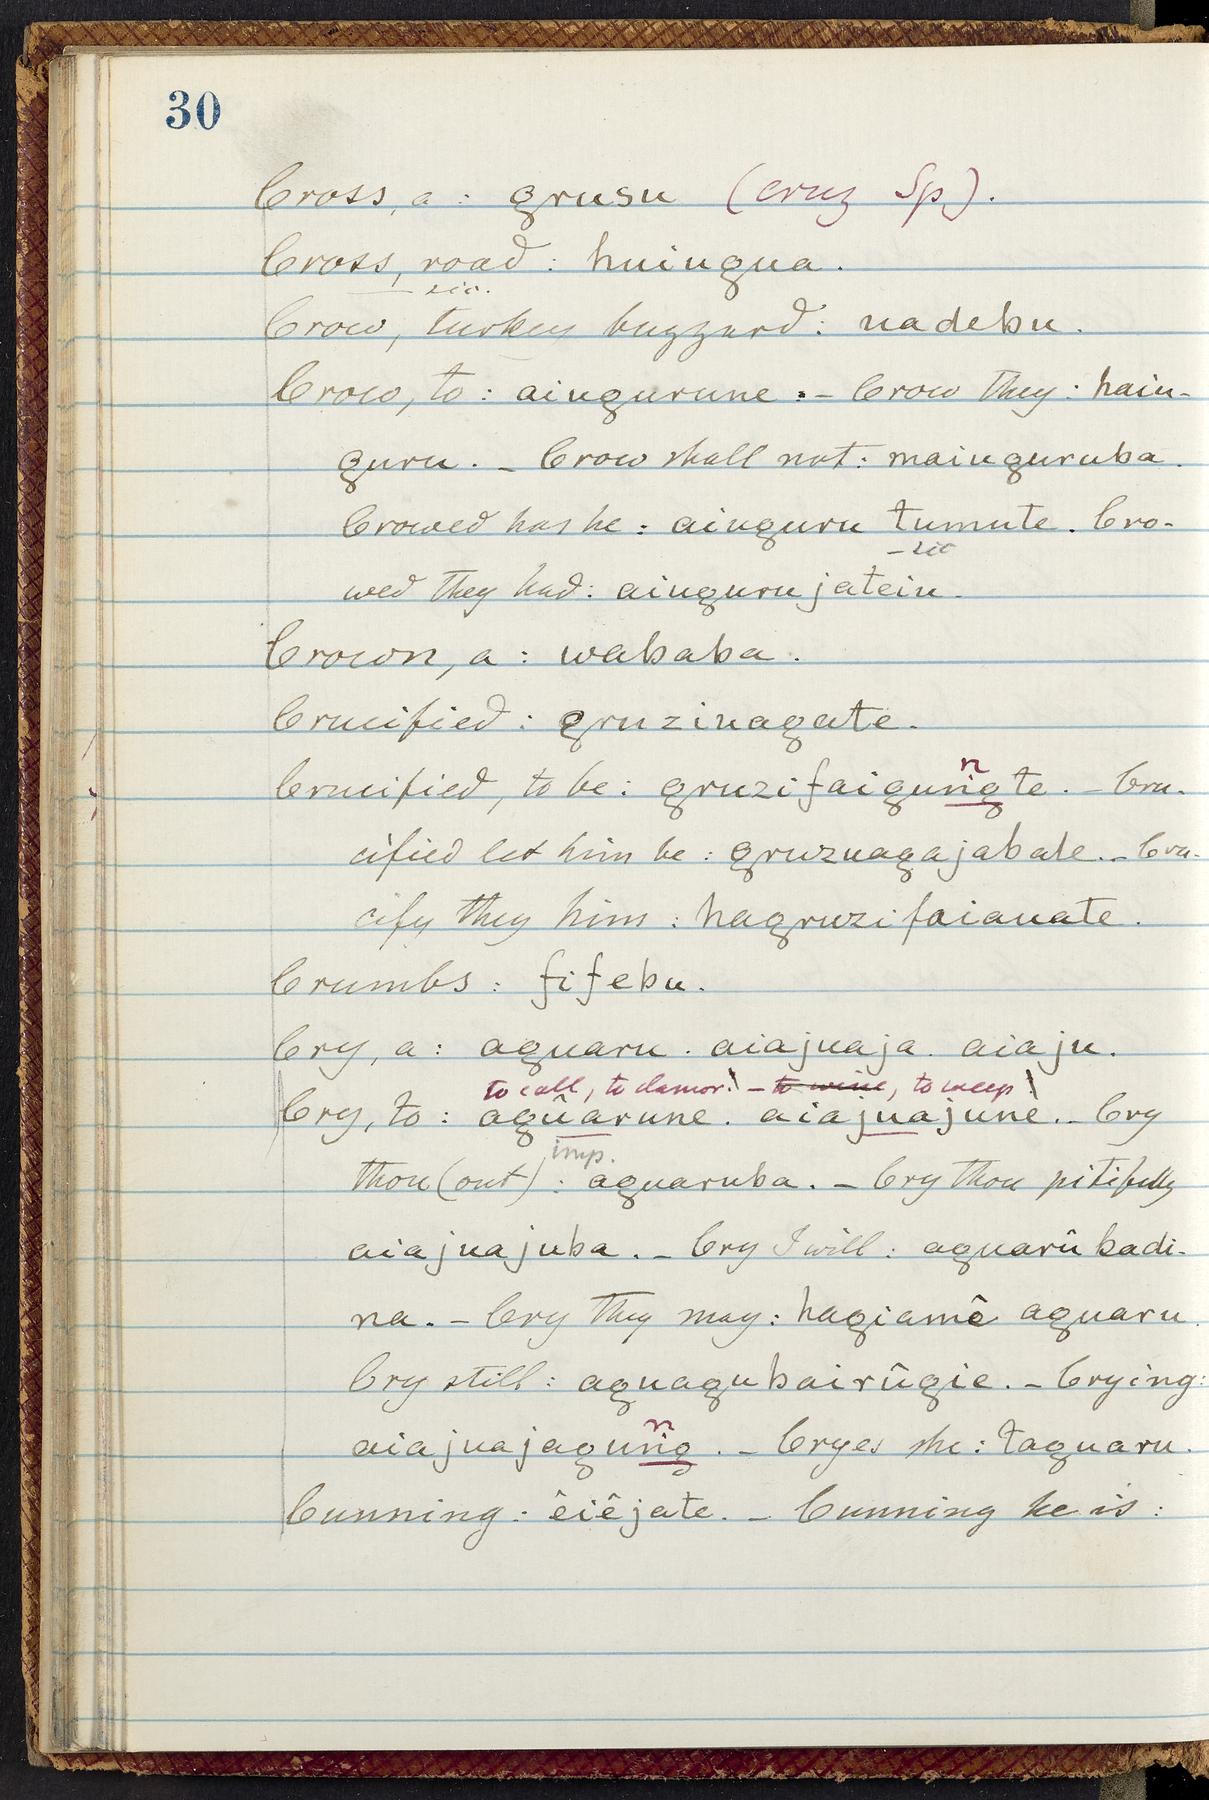 30
Cross, a : grusu (cruz Sp).
Cross, road : huiugua.
sic.
Crow, turkey buzzard : uadebu.
Crow, to : aiugurune. – Crow they : haiu-
guru. – Crow shall not : maiuguruba.
Crowed has he : aiuguru tumute. Cro-
– sic
wed they had : aiuguru jateiu.
Crown, a : wababa.
Crucified : gruzinagate.
n
Crucified, to be : gruzifaigungte. – Cru-
cified let him be : gruzuagajabale. – Cru-
cify they him : hagruzifaianate.
Crumbs : fifebu.
Cry, a : aguaru. aiajuaja. aiaju.
to call, to clamor. – to wine, to weep
Cry, to : agûarune. aiajuajune. – Cry
imp.
thou (out) : aguaruba. – Cry thou pitifully
aiajuajuba. – Cry I will : aguarû badi-
na. – Cry they may : hagiamê aguaru.
Cry still : aguagubairûgie. – Crying :
n
aiajuajagung. – Cryes she : taguaru.
Cunning : êiêjate. – Cunning he is :